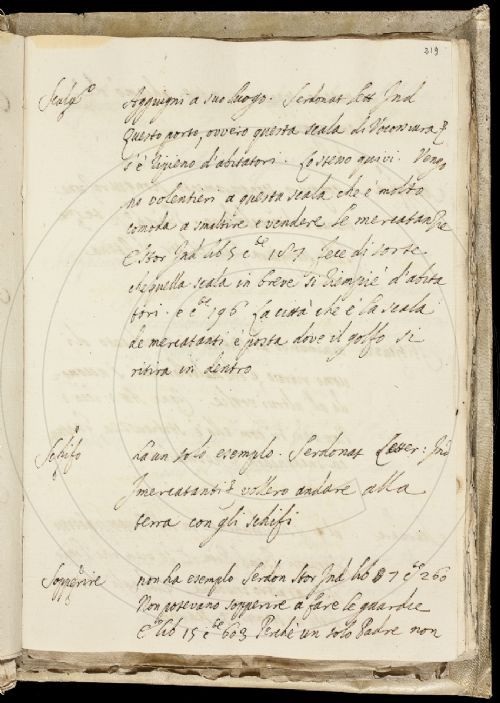 219
Scala
Aggiugni a suo luogo. Serdonat lett Ind
Questo porto, ovvero questa scala di Voconsura
s'è ripieno d'abitatori. Lo stesso quivi. Vengo
no volentieri a questa scala che è molto
comoda a smaltire e vendere le mercatanzie
E Stor Ind lib 5 c 187 fece di sorte
che quella scala in breve si riempiè d'abita
tori. e c 196 La città che è la scala
de mercatanti è posta dove il golfo si
ritira in dentro
Schifo
ha un solo esempio. Serdonat Letter: Ind
I mercatanti vollero andare alla
terra con gli schifi
Sopperire
non ha esempio Serdon Stor Ind lib 7 c 260
Non potevano sopperire a fare le guardie
E lib 15 c 603 Perchè un solo Padre non